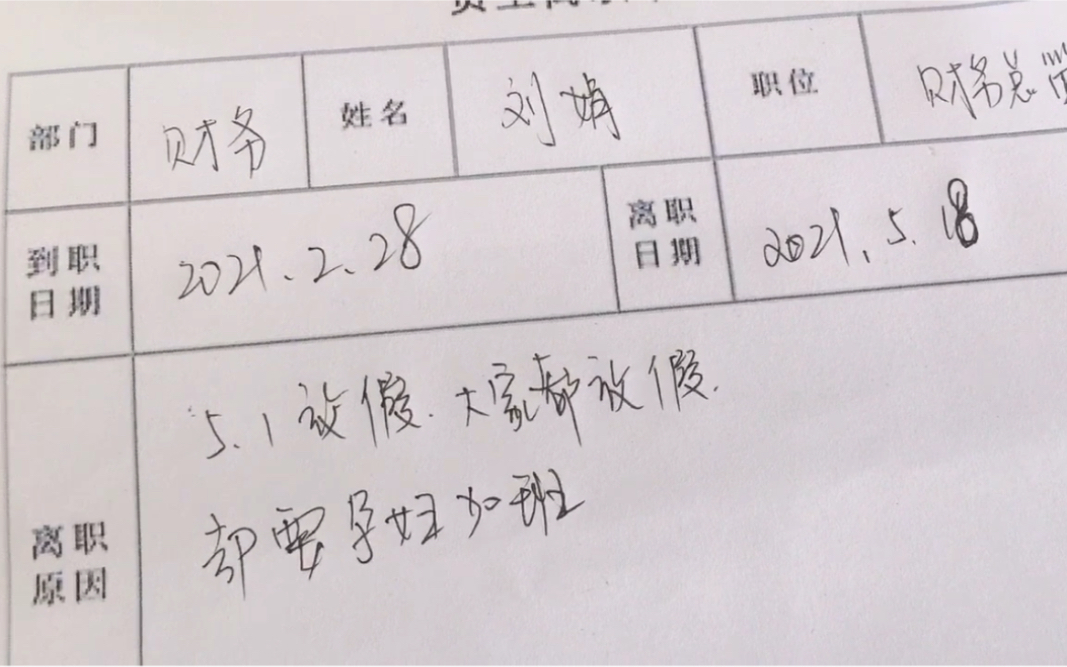 部门 财务 姓名 刘娟 职位 财务总监
到职日期 2021.2.28 离职日期 2021.5.18
离职原因
5.1放假.大家都放假.
却要孕妇加班